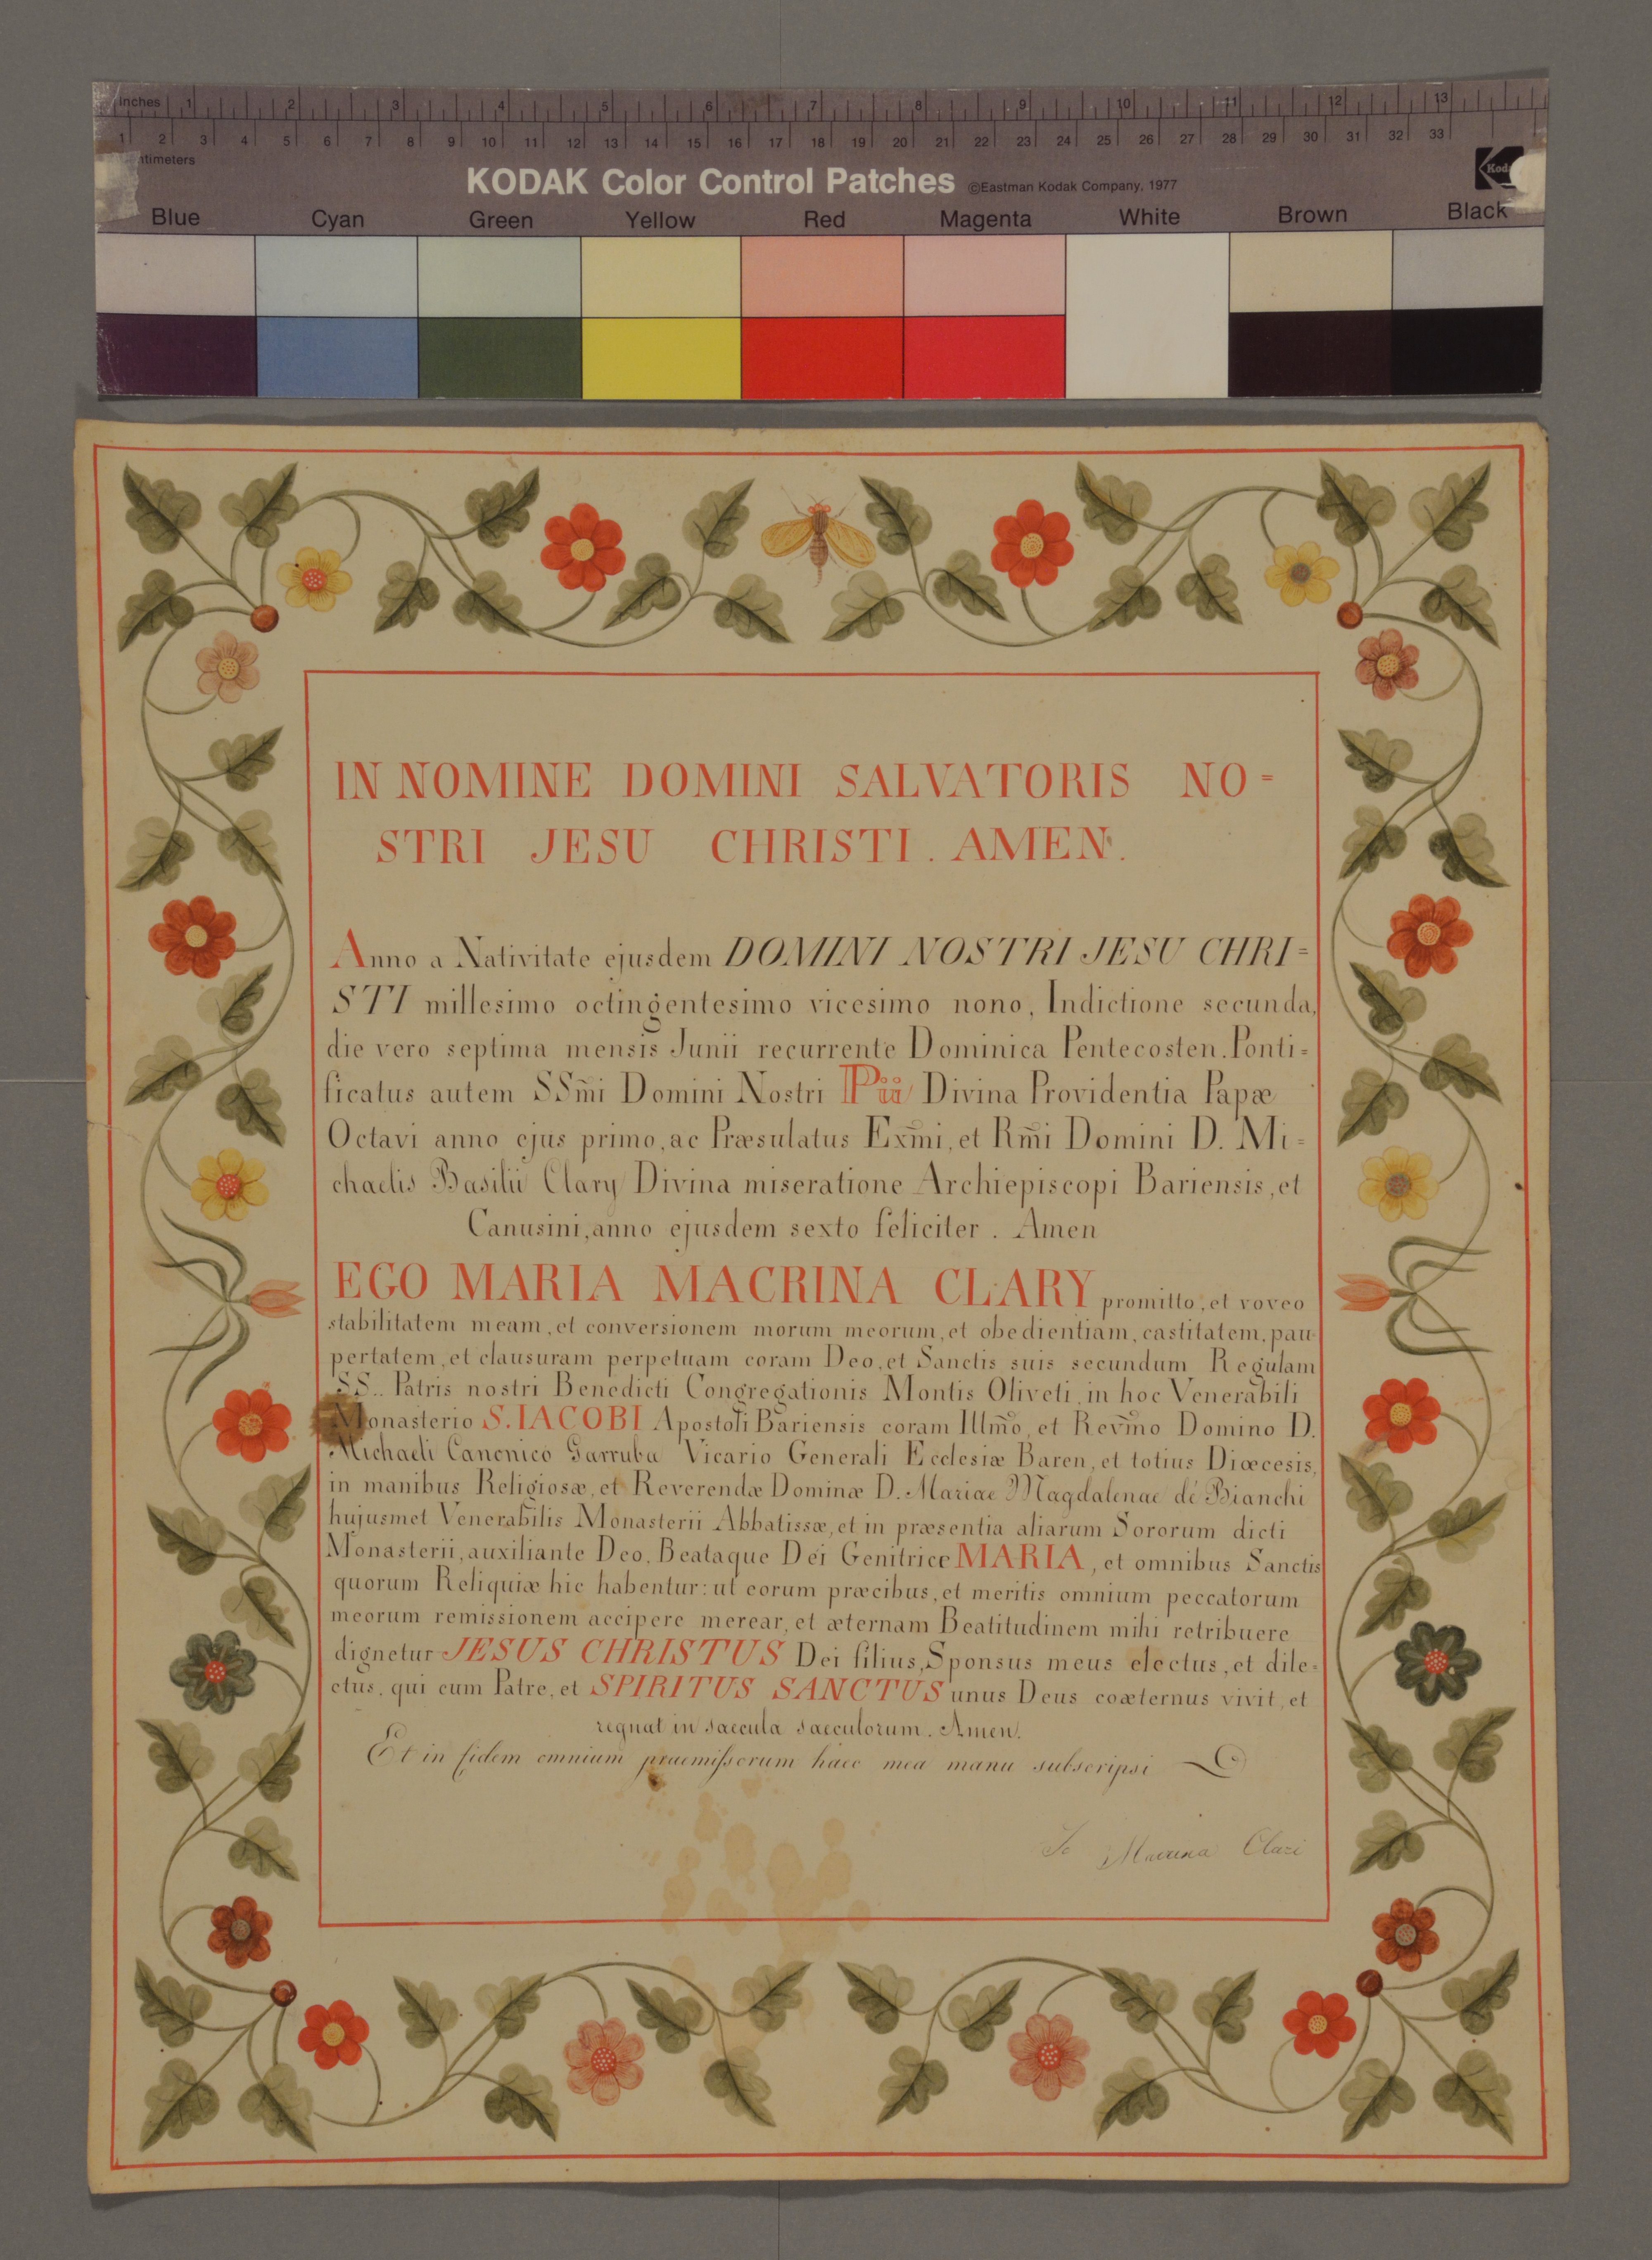 Inches 1 2 3 4 5 6 7 8 9 10 11 12 13
1 2 3 4 5 6 7 8 9 10 11 12 13 14 15 16 17 18 19 20 21 22 23 24 25 26 27 28 29 30 31 32 33
ntimeters
KODAK Color Control Patches ©Eastman Kodak Company, 1977
Blue Cyan Green Yellow Red Magenta White Brown Black
IN NOMINE DOMINI SALVATORIS NO=
STRI JESU CHRISTI. AMEN.
Anno a Nativitate ejusdem DOMINI NOSTRI JESU CHRI=
STI millesimo octingentesimo vicesimo nono, Indictione secunda,
die vero septima mensis Junii recurrente Dominica Pentecosten. Ponti=
ficatus autem SSm̃i Domini Nostri Pii Divina Providentia Papæ
Octavi anno ejus primo, ac Præsulatus Exm̃i, et Rm̃i Domini D. Mi=
chaelis Basilii Clary Divina miseratione Archiepiscopi Bariensis, et
Canusini, anno ejusdem sexto feliciter. Amen
EGO MARIA MACRINA CLARY promitto, et voveo
stabilitatem meam, et conversionem morum meorum, et obedientiam, castitatem, pau-
pertatem, et clausuram perpetuam coram Deo, et Sanctis suis secundum Regulam
SS.. Patris nostri Benedicti Congregationis Montis Oliveti, in hoc Venerabili
Monasterio S. IACOBI Apostoli Bariensis coram Illm̃o, et Revm̃o Domino D.
Michaeli Canonico Garruba Vicario Generali Ecclesiæ Baren, et totius Diœcesis,
in manibus Religiosæ, et Reverendæ Dominæ D. Mariae Magdalenae de Bianchi
hujusmet Venerabilis Monasterii Abbatissæ, et in præsentia aliarum Sororum dicti
Monasterii, auxiliante Deo, Beataque Dei Genitrice MARIA, et omnibus Sanctis
quorum Reliquiæ hic habentur: ut eorum præcibus, et meritis omnium peccatorum
meorum remissionem accipere merear, et æternam Beatitudinem mihi retribuere
dignetur JESUS CHRISTUS Dei filius, Sponsus meus electus, et dile=
ctus, qui cum Patre, et SPIRITUS SANCTUS unus Deus coæternus vivit, et
regnat in saecula saeculorum. Amen.
Et in fidem omnium praemissorum haec mea manu subscripsi
Io Macrina Clari